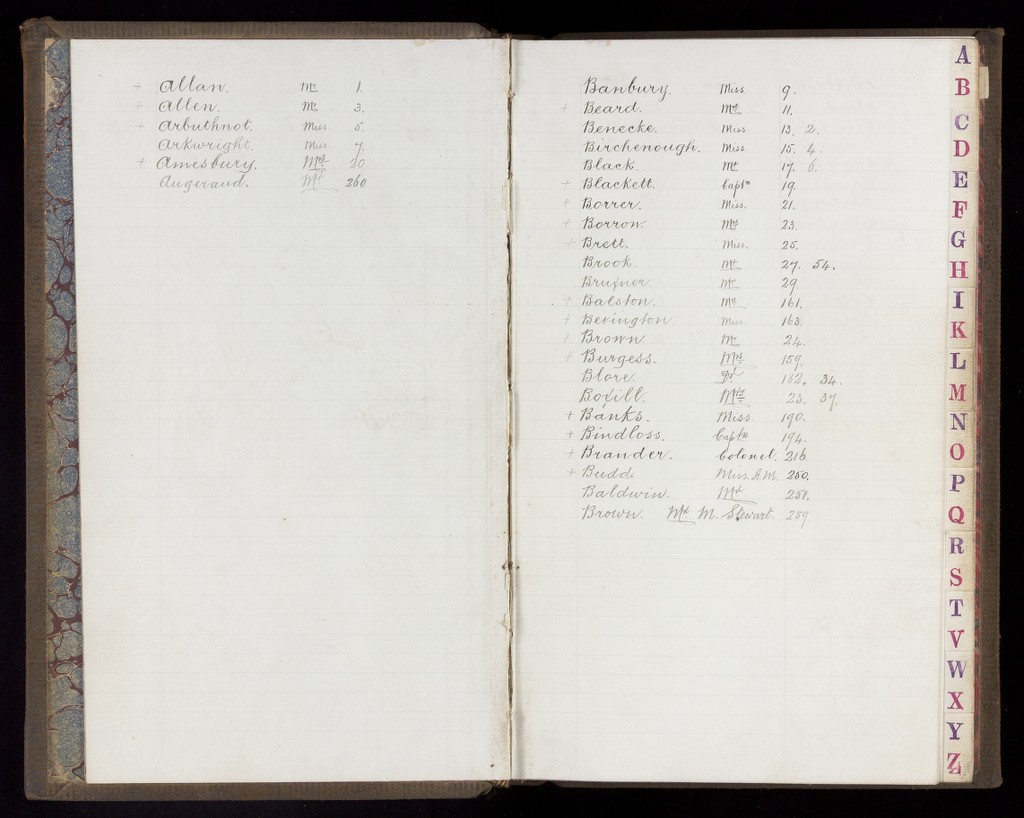 + Allan. Mr 1.
+ Allen. Mr 3.
+ Arbuthnot. Miss 5.
Arkwright. Miss 7.
+ Amesbury. Mrs 20
Augeraud. 260
Banbury. Miss 9.
+ Beard. 11.
Benecke. Miss 13. 2.
Birchenough. Miss 15. 4.
Black Mr 17. 6.
+ Blackett. Captn 19.
+ Borrer. Miss. 21.
+ Borrow. 23.
+ Brett. Miss. 25.
Brook Mr 27. 54.
Brufner Mr 29.
+ Balston. Mr 161.
+ Bevington. Miss. 163.
+ Brown Mr 24.
+ Burgess. Mrs 159.
Blore. Dr 182. 34.
Bovill. 23. 37.
+ Banks. Miss. 190.
+ Bindloss. Captn 194.
+ Brander. Colonel. 216.
+ Budde Miss. A.M. 250.
Baldwin. 251.
Brown. M. Stewart. 259
A
B
C
D
E
F
G
H
I
K
L
M
N
O
P
Q
R
S
T
V
W
X
Y
Z